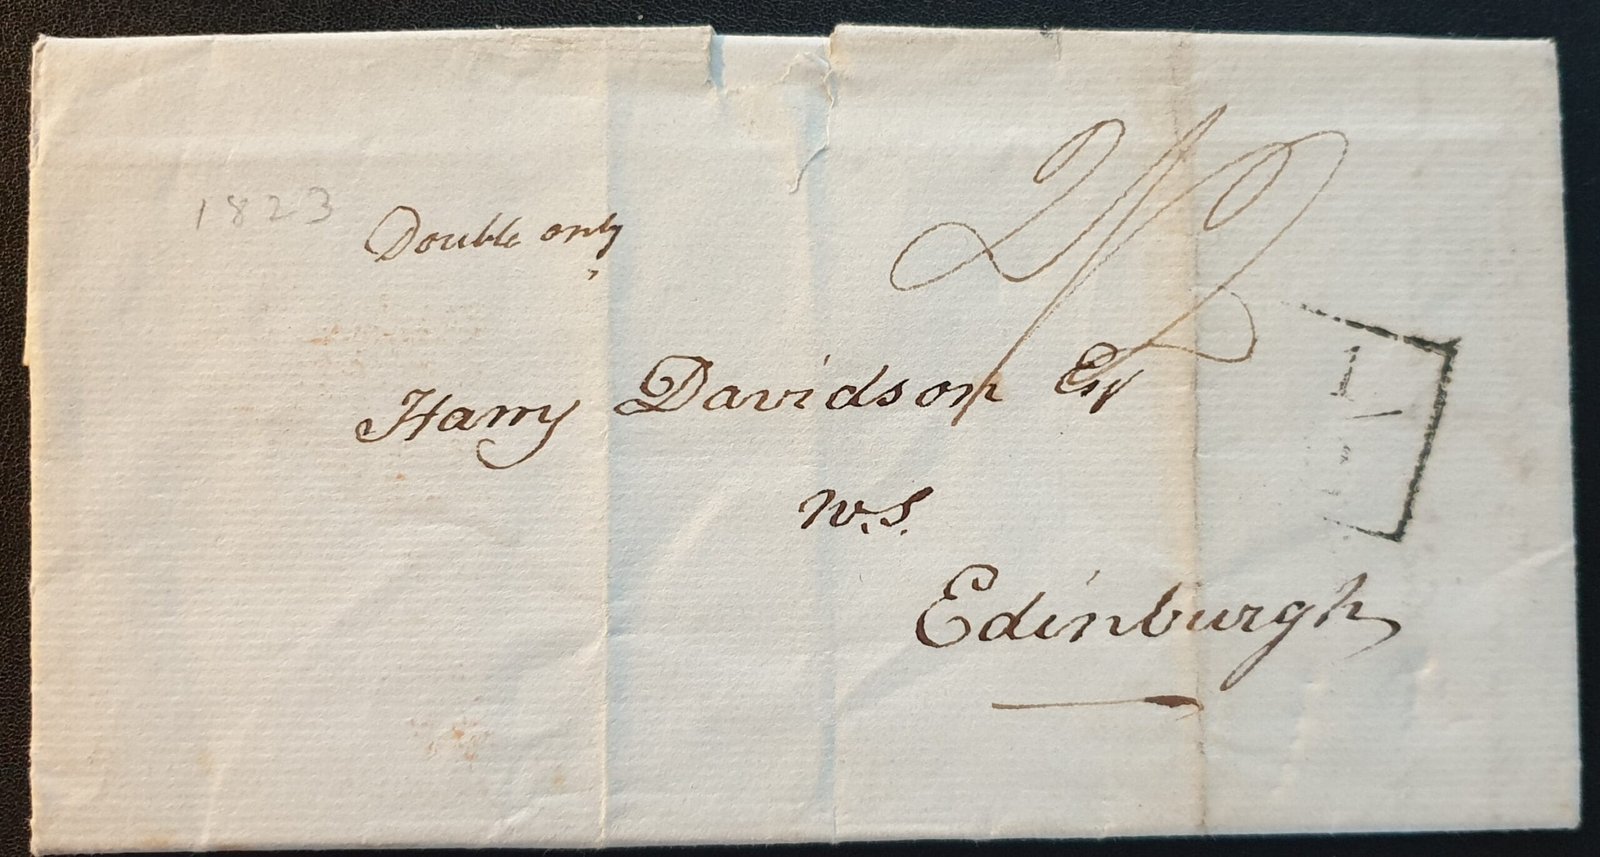 1823
Double only
2/2
Harry Davidson Esqr
W.S.
Edinburgh